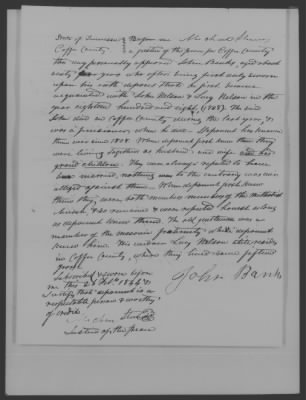 State of Tennessee } Before me
Coffee County } a justice of the peace for Coffee County
this day personally appeared John Banks, aged about
sixty years who after being first duly sworn
upon his oath deposes that he first became
acquainted with John Nelson & Lucy Nelson in the
year eighteen hundred and eight, (1808). The said
John died in Coffee County during the last year, &
was a pensioner when he Deponent has known
them ever since 1808. When deponent first knew them they
were living together as husband and wife and had
grand children. They were always reputed to have
been married, nothing to the contrary was ever
alleged against them. When deponent first knew
them they were both members of the Methodist
church & so remained & were reputed honest as long
as deponent knew them. The old gentleman was a
member of the masonic fraternity while deponent
knew him. His widow Lucy Nelson still resides
in Coffee County, where they lived some fifteen
years.
John Banks
Subscribed & sworn before
me this 28 Feb. 1844 & I
certify that deponent is a
respectable person & worthy
of credit.
Justice of the peace